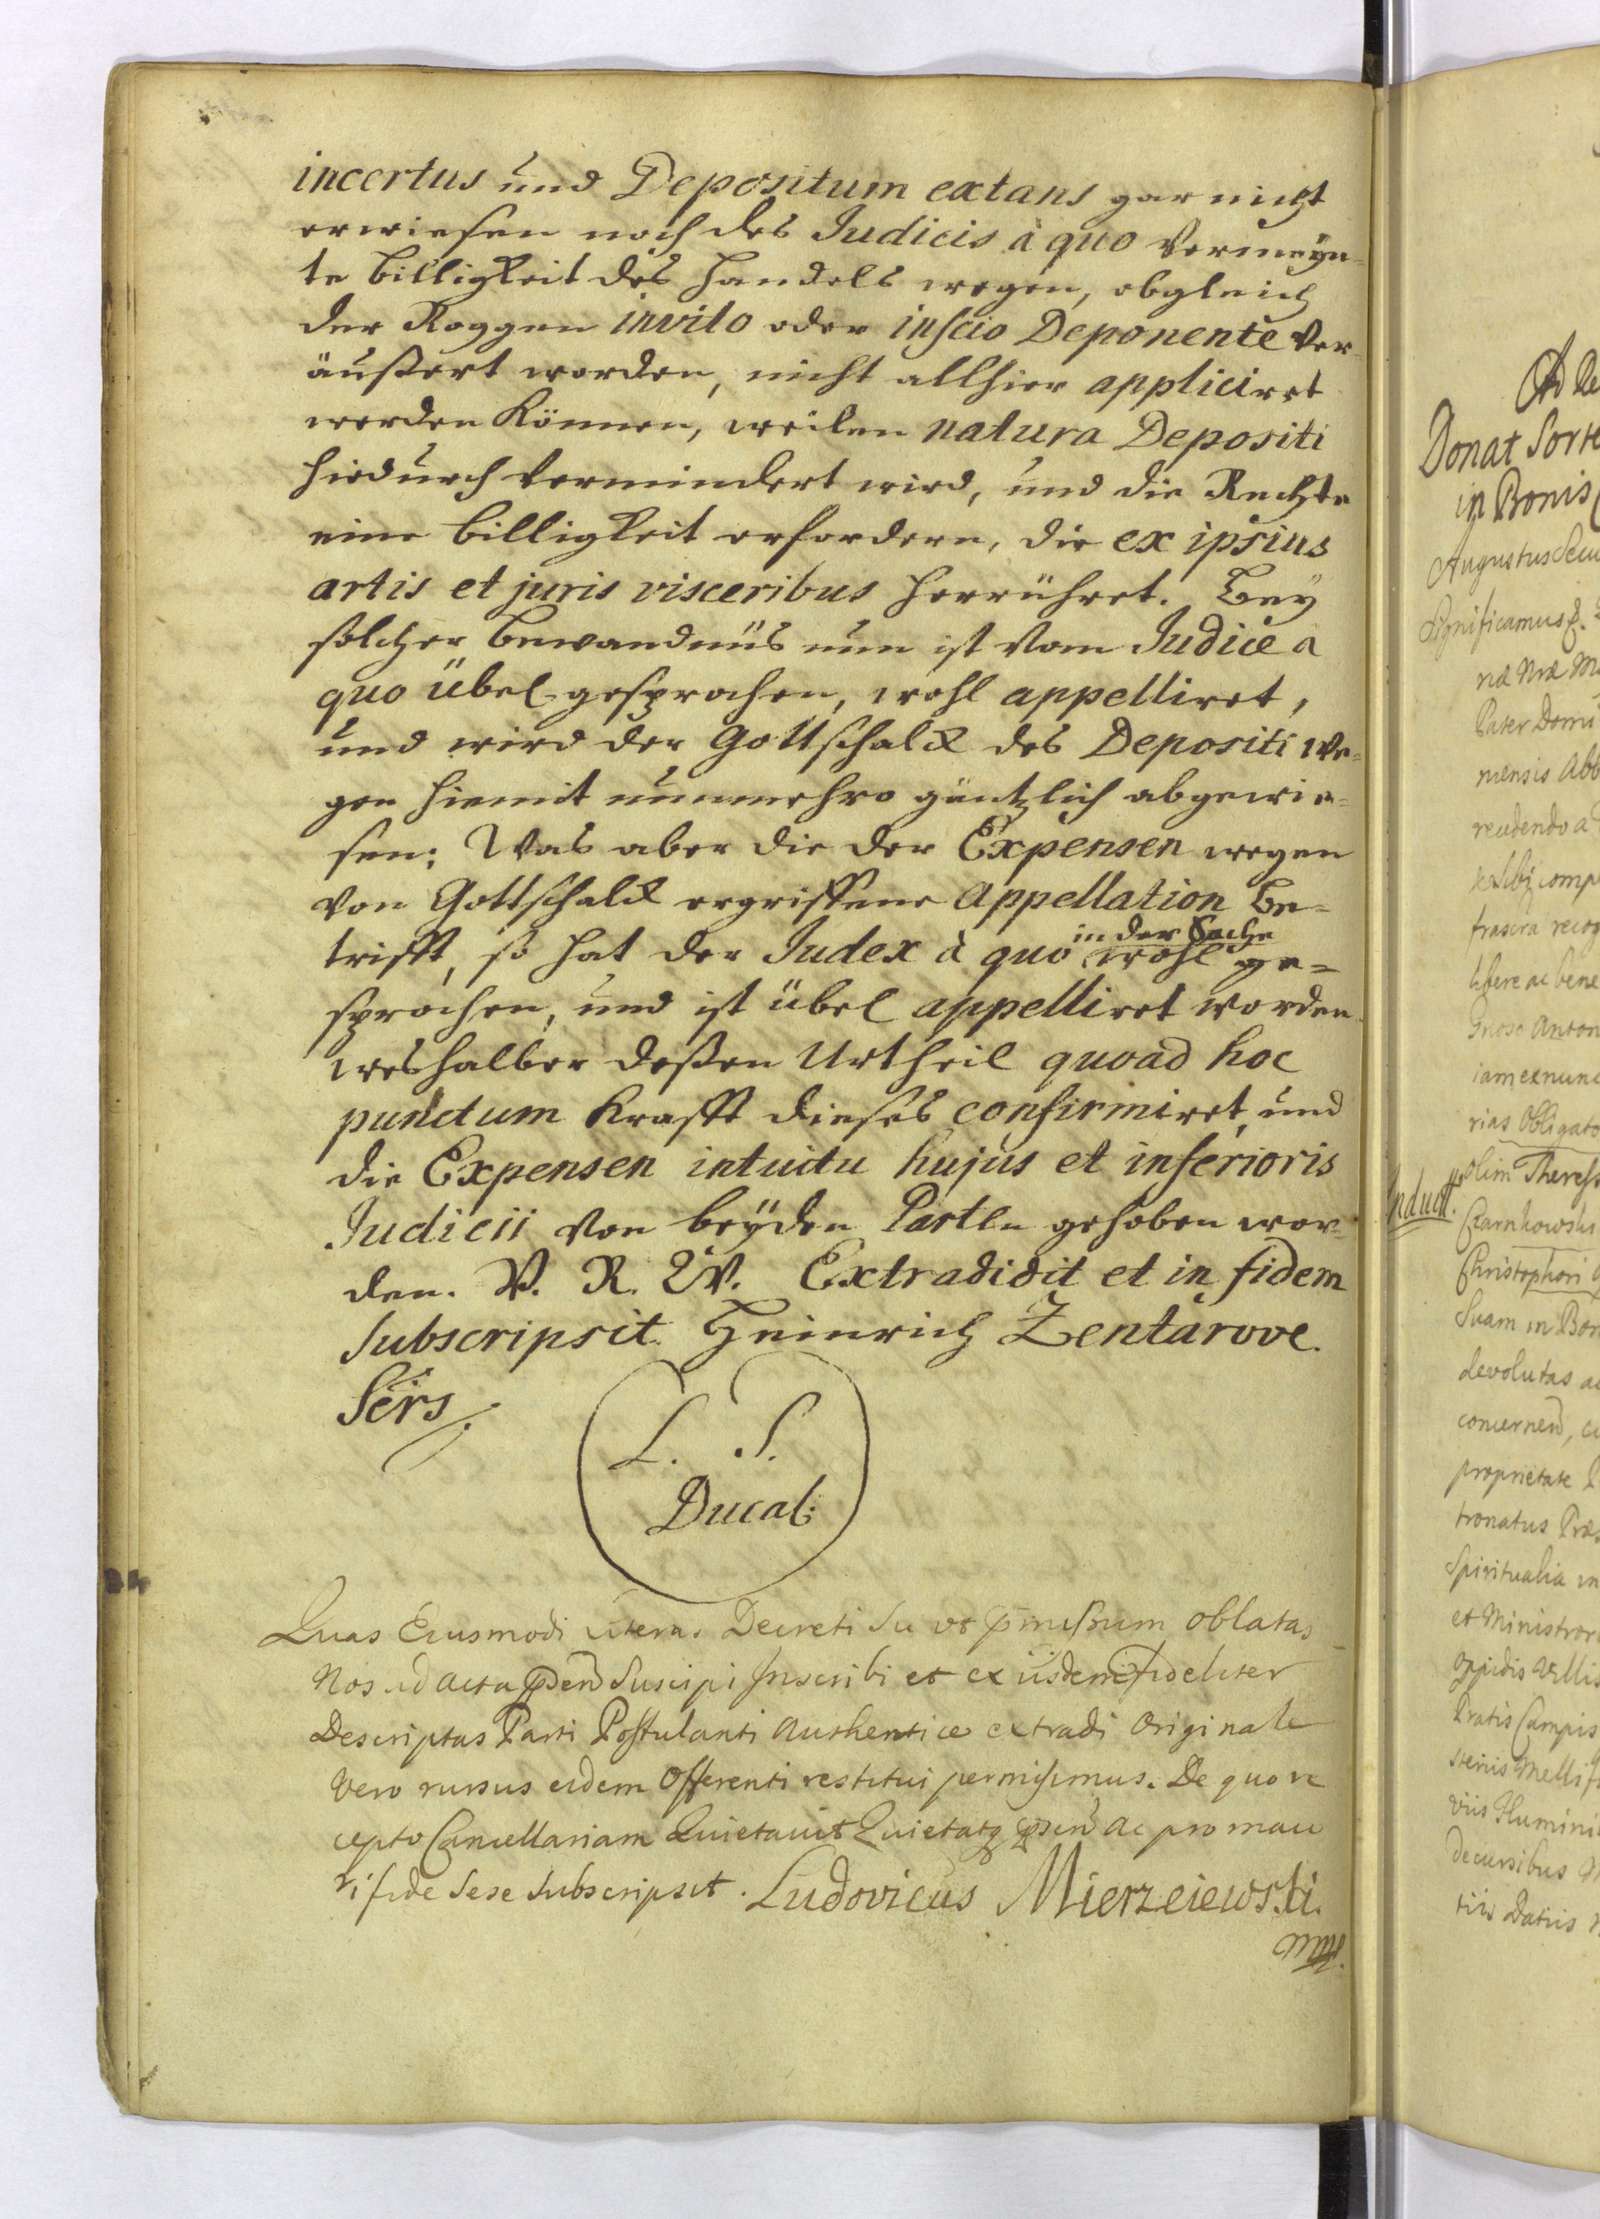 incertus und Depositum extans gar nicht
erwiesen noch des Judicis à quo vermeyn-
te billigkeit des Handels wegen, obgleich
der Roggen invito oder inscio Deponente ver-
äußert worden, nicht allhier appliciret
werden können, weilen natura Depositi
hiedurch vermindert wird, und die Rechte
eine billigkeit erfordern, die ex ipsius
artis et juris visceribus herrühret. Bey
solcher bewandnüs nun ist vom Judice à
quo übel gesprochen, wohl appelliret,
und wird der Gottschalck des Depositi we-
gen hiemit nunmehro gäntzlich abgewie-
sen; Was aber die der Expensen wegen
von Gottschalck ergriffene Appellation be-
trifft, so hat der Judex à quo in der Sache wohl ge-
sprochen, und ist übel appelliret worden
weshalber deßen Urtheil quoad hoc
punctum Krafft dieses confirmiret, und
die Expensen intuitu hujus et inferioris
Judicii von beyden Parten gehoben wor-
den. V. R. W. Extradidit et in fidem
subscripsit Heinrich Zentarove.
Sërs
L. S.
Ducal:
Quas Eiusmodi litera. Decreti Su vt pmissum oblatas
Nos ad acta pend Suscipi Inscribi et ex iisdem fideliter
Descriptas Parti Postulanti authentice extradi Originale
Vero rursus eidem Offerenti restitui permisimus. De quo re
cepto Cancellariam Quietavit Quietatq psend ac pro maio
ri fide Sese Subscripsit. Ludovicus Mierzeiewski.
mpp.
Donat Sorte
in Bonis
Augustus Secu
Significamus &.
næ Nræ Ma
Pater Domi
mensis Abb
libere ac bene
Gnoso Anton
iam ex nunc
rias Obligato
Induct.
olim Theress
Czarnkowski
Christophori
Suam in Bon
devolutas a
concernend, cu
proprietate
tronatus Præs
Spiritualia in
et Ministror
Oppidis Villis
Pratis Campis
viis Flumini
decursibus